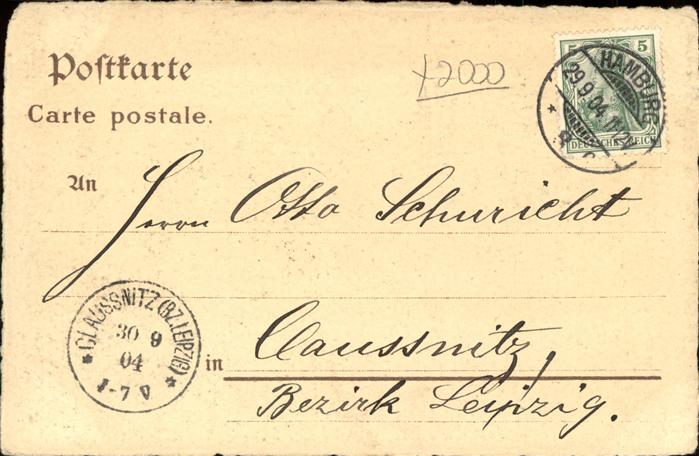 Postkarte
Carte postale.
×2000
5 5
DEUTSCHES REICH
HAMBURG
29.9.04
An
Herrn Otto Schuricht
CLAUSSNITZ (BZ. LEIPZIG)
30 9
04
-7 V
in
Claussnitz,
Bezirk Leipzig.